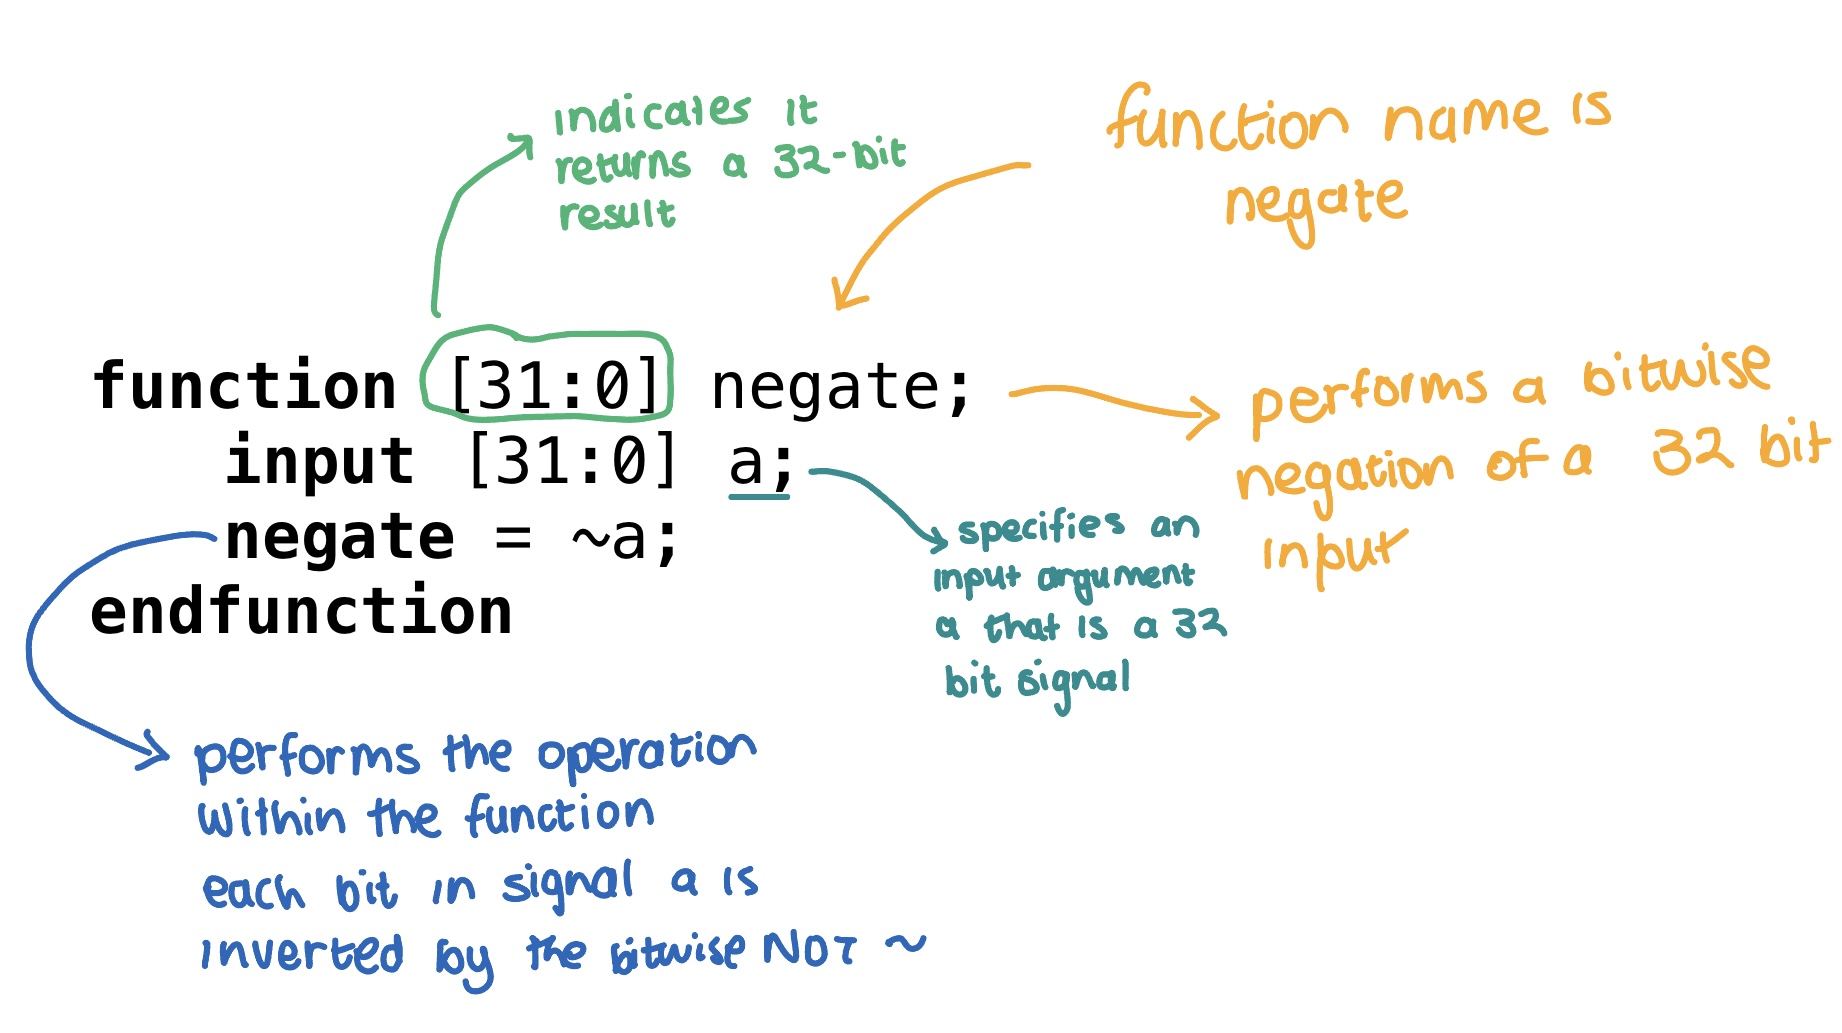 indicates it
returns a 32-bit
result
function name is
negate
function [31:0] negate;
input [31:0] a;
negate = ~a;
endfunction
performs a bitwise
negation of a 32 bit
input
specifies an
input argument
a that is a 32
bit signal
performs the operation
within the function
each bit in signal a is
inverted by the bitwise NOT ~